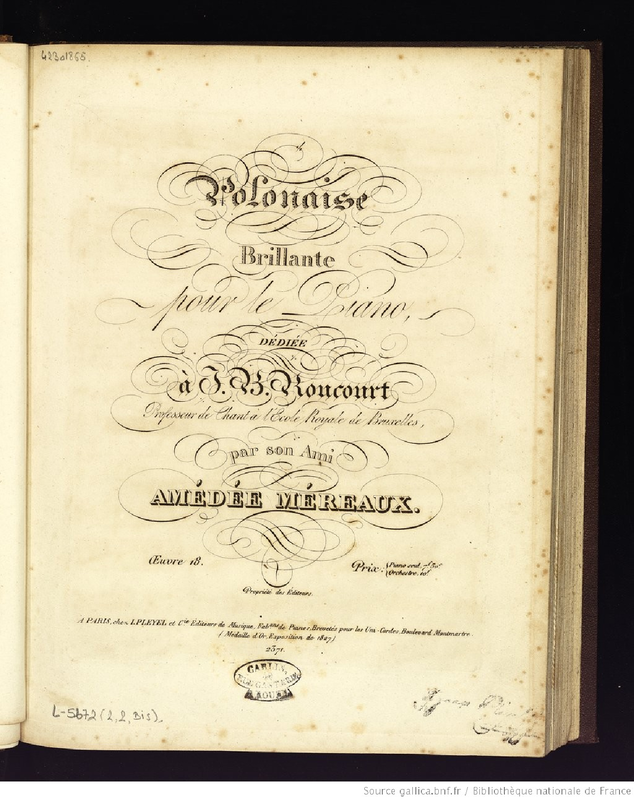 Polonaise
Brillante
pour le Piano,
DÉDIÉE
à J. B. Roucourt
Professeur de Chant a l'Ecole Royale de Bruxelles,
par son Ami
AMÉDÉE MÉREAUX.
Œuvre 18.
Prix:
Piano seul. 7f 50c
Orchestre. 10f
Propriété des Editeurs.
A PARIS, chez I. PLEYEL et Cie Editeurs de Musique, Fabans de Pianos, Brevetés pour les Uni-Cordes, Boulevard Montmartre.
(Médaille d'Or, Exposition de 1827)
2371.
CARLIN,
A ROUEN
L-5672 (2,2, Bis).
Source gallica.bnf.fr / Bibliothèque nationale de France